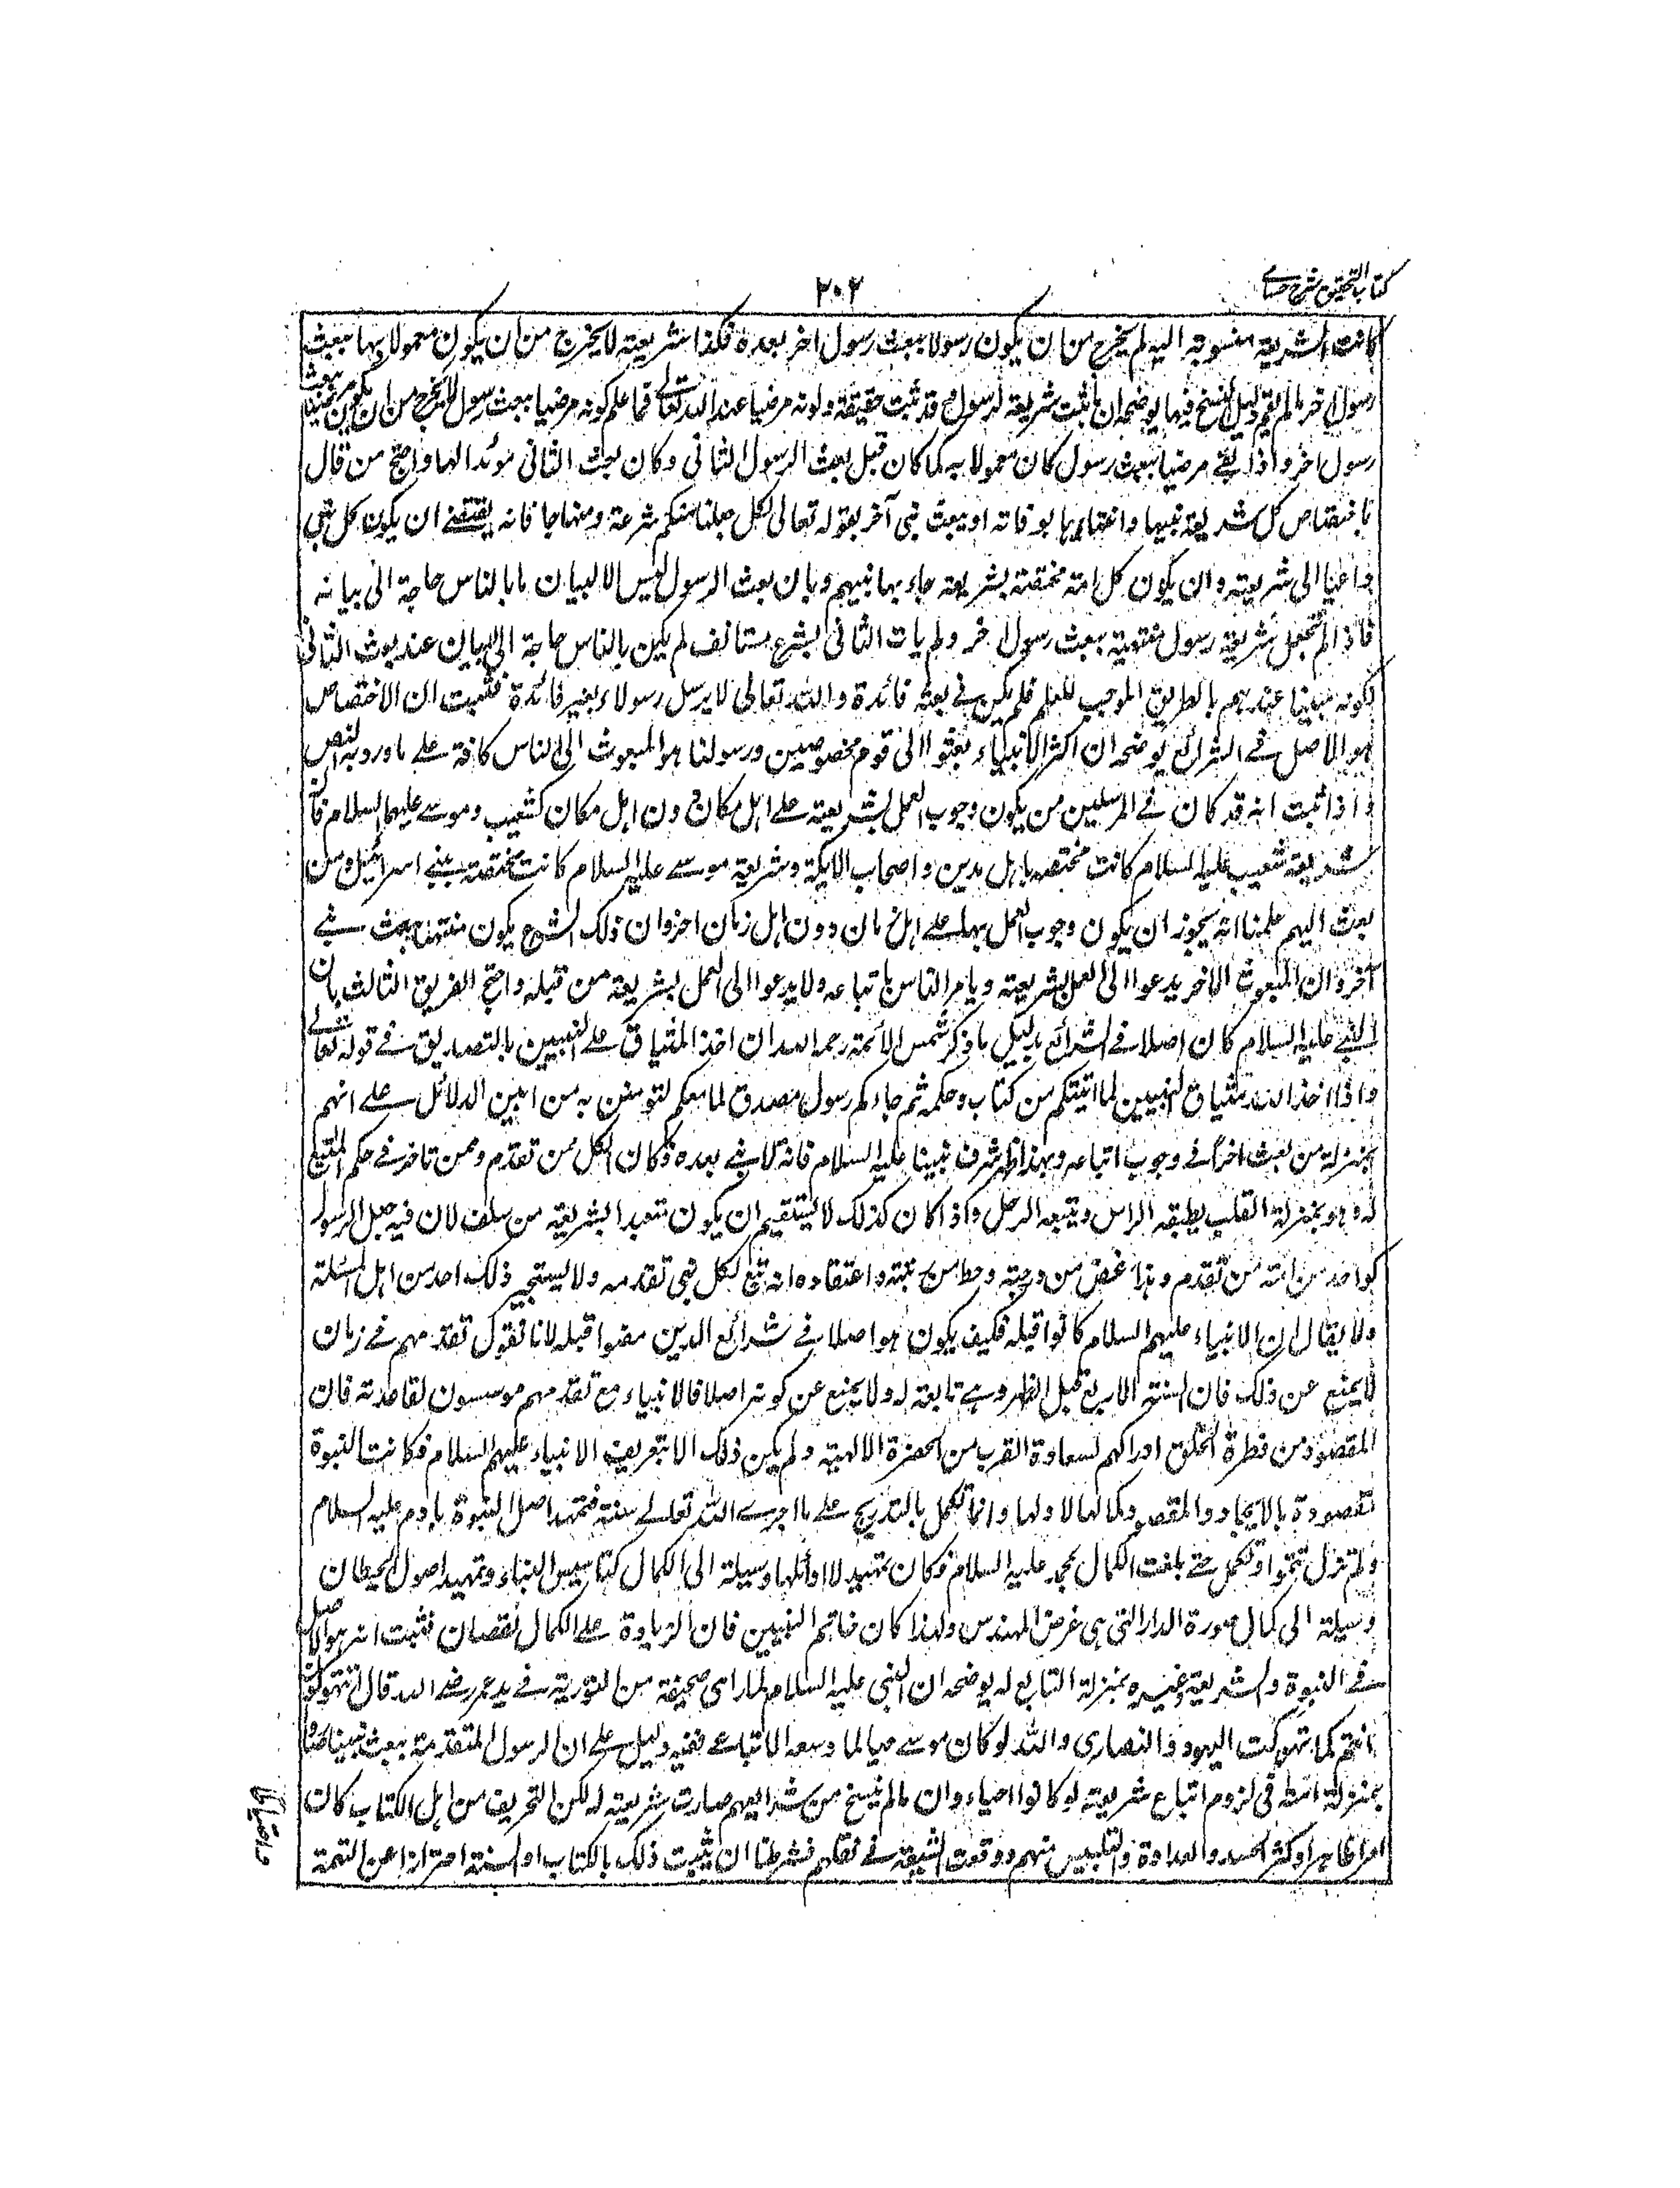 كتاب التحقيق شرح حسامى
٢٠٢
كانت الشريعة منسوبة اليه لم يخرج من ان يكون رسولا ببعث رسول اخر بعده فكذا شريعته لا يخرج من ان يكون معمولا بها ببعث
رسول اخر ما لم يقم دليل النسخ فيها يوضحه ان ما ثبت شريعة لرسول فقد ثبت حقيقته وكونه مرضيا عند الله تعالى فما علم كونه مرضيا ببعث رسول لا يخرج من ان يكون مرضيا ببعث
رسول اخر واذا بقى مرضيا ببعث رسول كان معمولا به كما كان قبل بعث الرسول الثانى وكان بعث الثانى مؤيدا لها واحتج من قال
باختصاص كل شريعة بنبيها وانتهائها بوفاته او ببعث نبى آخر بقوله تعالى لكل جعلنا منكم شرعة ومنهاجا فانه يقتضى ان يكون كل نبى
داعيا الى شريعته وان يكون كل امة مختصة بشريعة جاء بها نبيهم وبان بعث الرسول ليس الا لبيان ما بالناس حاجة الى بيانه
فاذا لم تجعل شريعة رسول منتهية ببعث رسول اخر ولم يات الثانى بشرع مستانف لم يكن بالناس حاجة الى البيان عند بعث الثانى
لكونه مبينا عندهم بالطريق الموجب للعلم فلم يكن فى بعثه فائدة والله تعالى لا يرسل رسولا بغير فائدة فثبت ان الاختصاص
هو الاصل فى الشرائع يوضحه ان اكثر الانبياء بعثوا الى قوم مخصوصين ورسولنا هو المبعوث الى الناس كافة على ما ورد به النص
واذا ثبت انه قد كان فى المرسلين من يكون وجوب العمل بشريعته على اهل مكان دون اهل مكان كشعيب وموسى عليهما السلام فان
شريعة شعيب عليه السلام كانت مختصة باهل مدين واصحاب الايكة وشريعة موسى عليه السلام كانت مختصة ببنى اسرائيل ومن
بعث اليهم علمنا انه يجوز ان يكون وجوب العمل بها على اهل زمان دون اهل زمان اخر وان ذلك الشرع يكون منتهيا ببعث نبى
آخر وان المبعوث الاخر يدعو الى العمل بشريعته ويامر الناس باتباعه ولا يدعو الى العمل بشريعة من قبله واحتج الفريق الثالث بان
النبى عليه السلام كان اصلا فى الشرائع بدليل ما ذكر شمس الائمة رحمه الله ان اخذ الميثاق على النبيين بالتصديق فى قوله تعالى
واذ اخذ الله ميثاق النبيين لما اتيتكم من كتاب وحكمة ثم جاءكم رسول مصدق لما معكم لتؤمنن به من ابين الدلائل على انهم
بمنزلة من بعث اخرا فى وجوب اتباعه وبهذا ظهر شرف نبينا عليه السلام فانه لا نبى بعده فكان الكل ممن تقدم وممن تاخر فى حكم المتبع
له وهو بمنزلة القلب يطيعه الراس ويتبعه الرجل واذا كان كذلك لا يستقيم ان يكون متعبدا بشريعة من سلف لان فيه جعل الرسول
كواحد من امة من تقدم وهذا غض من درجته وحط من رتبته واعتقاده انه تبع لكل نبى تقدمه ولا يستجيز ذلك احد من اهل المسئلة
ولا يقال ان الانبياء عليهم السلام كانوا قبله فكيف يكون هو اصلا فى شرائع الذين مضوا قبله لانا نقول تقدمهم فى زمان
لا يمنع عن ذلك فان السنة الاربع قبل الظهر وهى تابعة له ولا يمنع عن كونه اصلا فالانبياء مع تقدمهم موسسون لقاعدته فان
المقصود من فطرة الخلق ادراكهم لسعادة القرب من الحضرة الالهية ولم يكن ذلك الا بتعريف الانبياء عليهم السلام فكانت النبوة
مقصودة بالايجاد والمقصود كمالها لا اولها وانما تكمل بالتدريج على ما اجرى الله تعالى سنته فتمهد اصل النبوة بادم عليه السلام
ولم تزل تنمو وتكمل حتى بلغت الكمال بمحمد عليه السلام فكان تمهيد اوائلها وسيلة الى الكمال كتاسيس البناء وتمهيد اصول الحيطان
وسيلة الى كمال صورة الدار التى هى غرض المهندس ولهذا كان خاتم النبيين فان الزيادة على الكمال نقصان فثبت انه هو الاصل
فى النبوة والشريعة وغيره بمنزلة التابع له يوضحه ان النبى عليه السلام لما راى صحيفة من التورية فى يد عمر رضى الله قال امتهوكون
انتم كما تهوكت اليهود والنصارى والله لو كان موسى حيا لما وسعه الا اتباعى ففيه دليل على ان الرسول المتقدم ببعث نبينا
بمنزلة امته فى لزوم اتباع شريعته لو كانوا احياء وان ما لم ينسخ من شرائعهم صارت شريعة له لكن التحريف من اهل الكتاب كان
امرا ظاهرا وكثر الحسد والعداوة والتلبيس منهم ووقعت الشبهة فى نقلهم فشرطنا ان يثبت ذلك بالكتاب او السنة احترازا عن التهمة